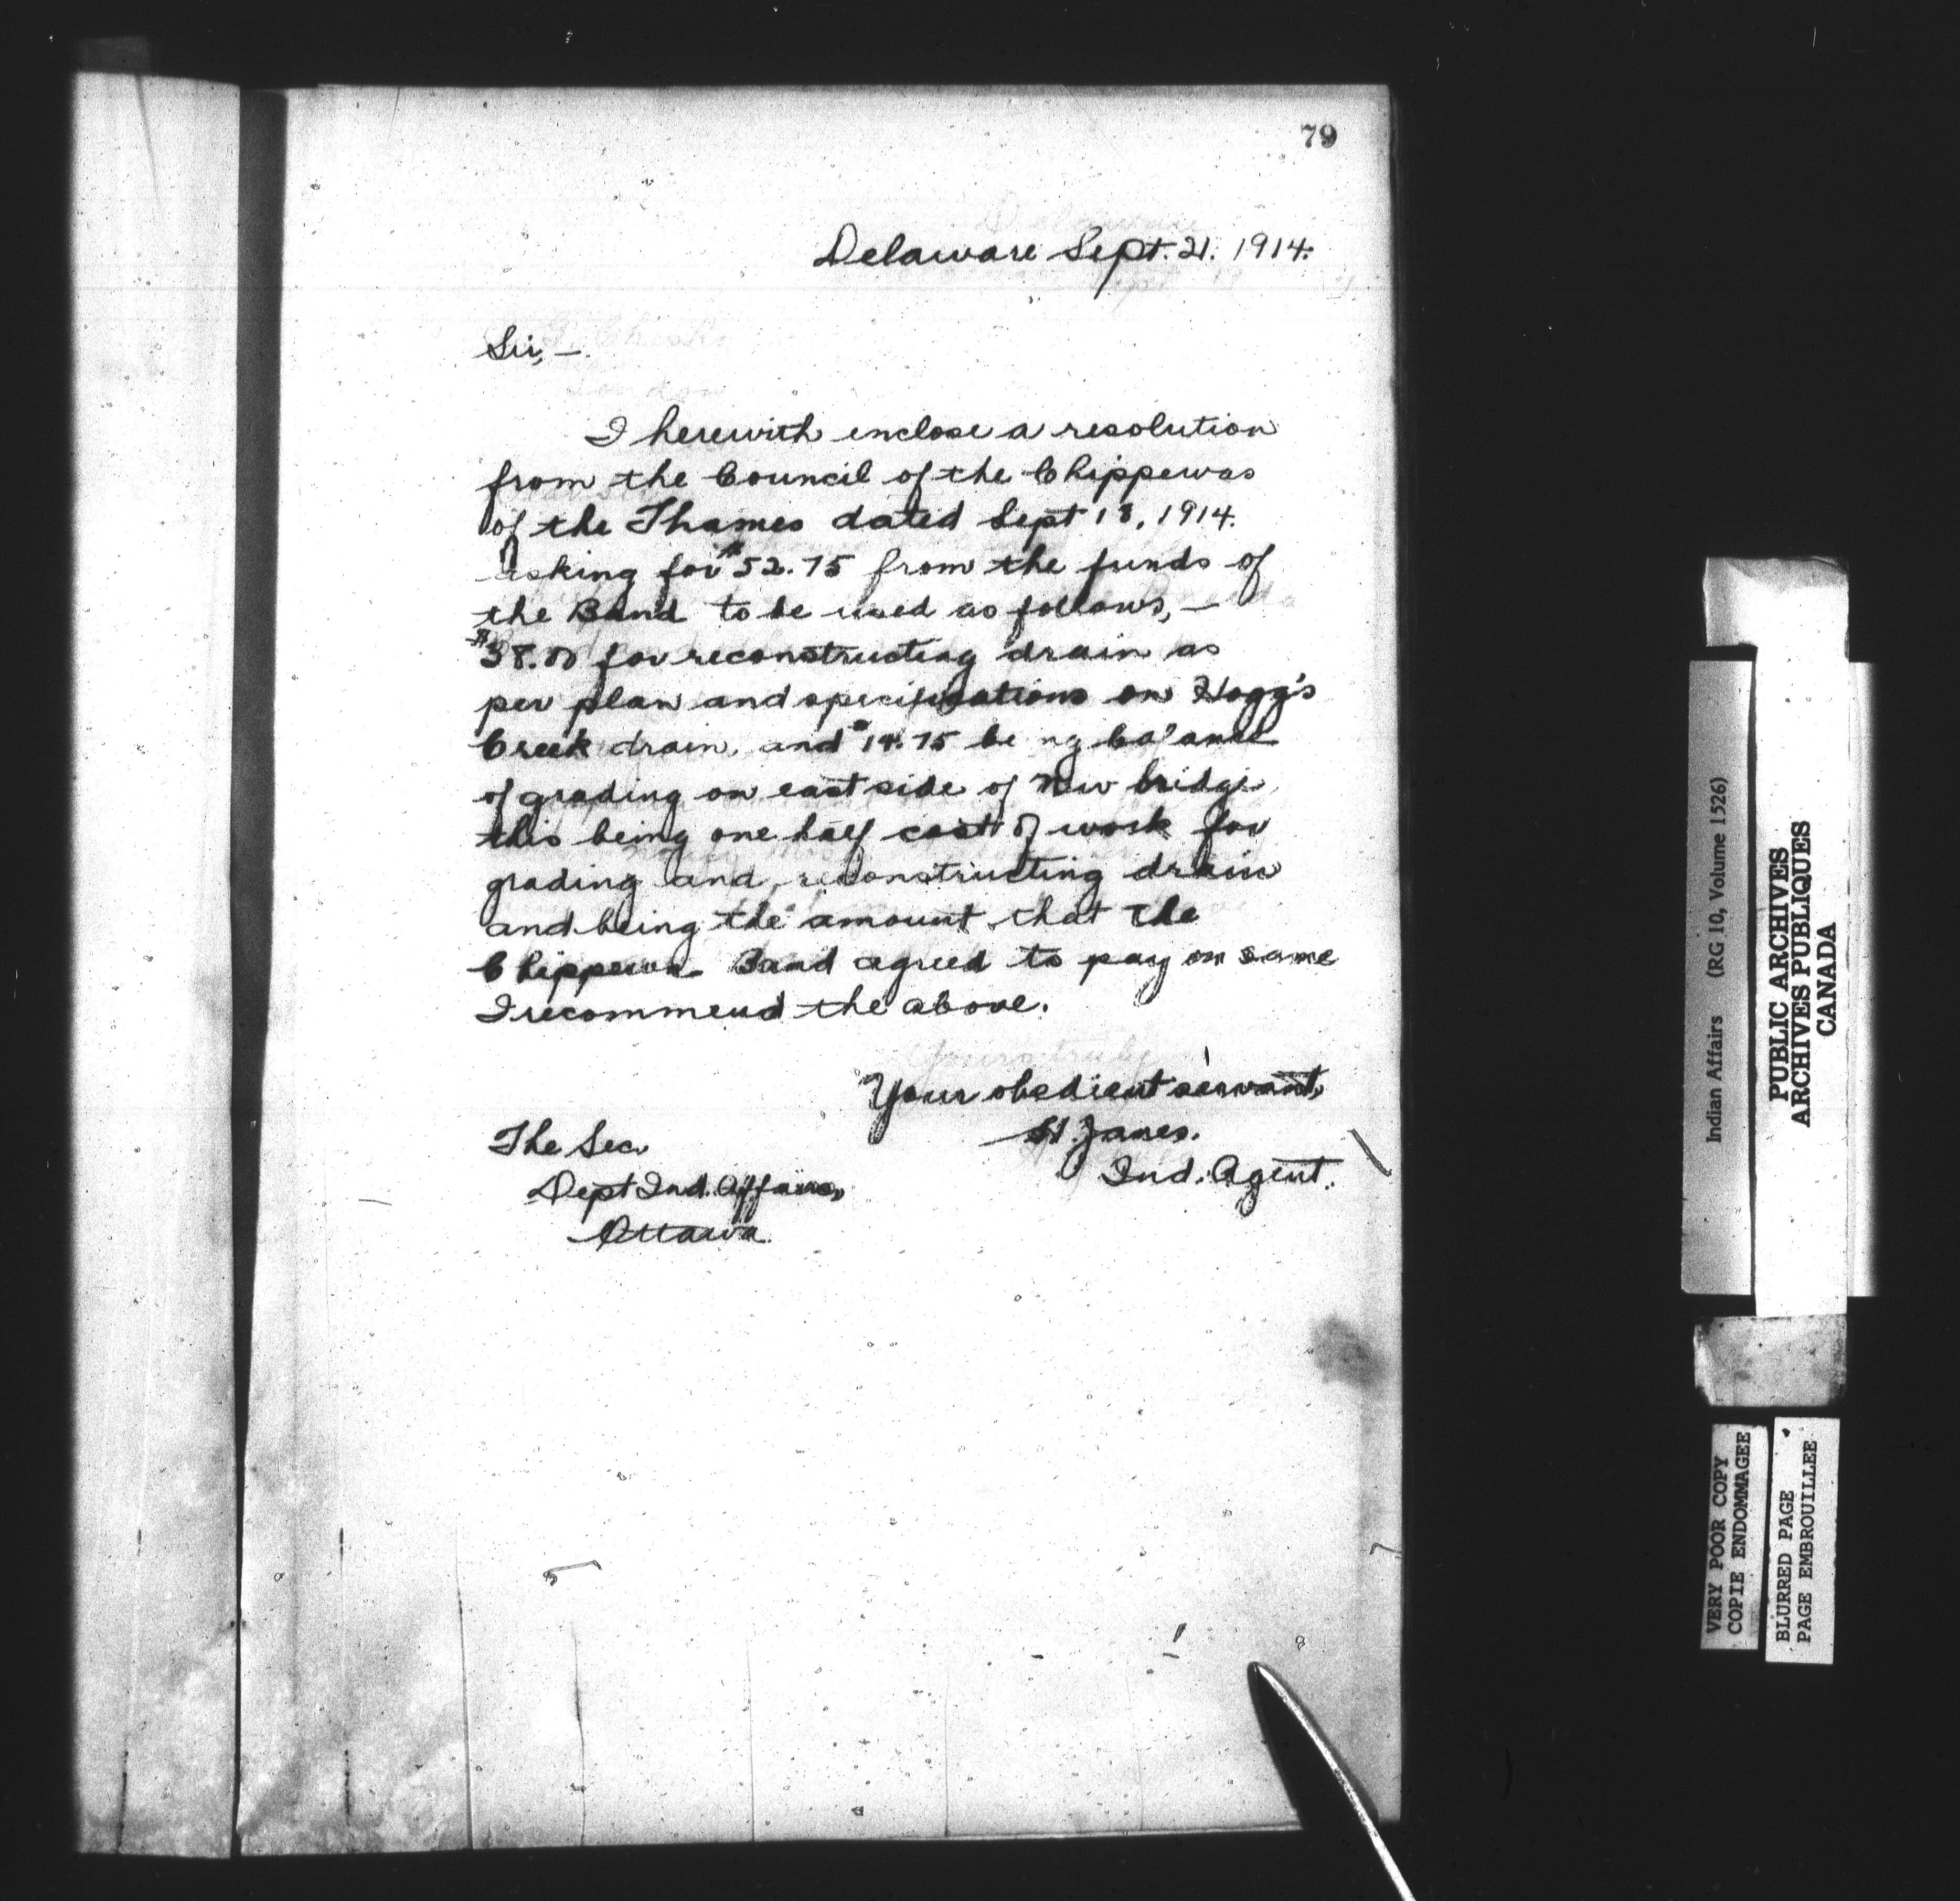 79
Delaware Sept. 21. 1914.
Sir, —
I herewith enclose a resolution
from the Council of the Chippewas
of the Thames dated Sept 18, 1914.
asking for $52.75 from the funds of
the Band to be used as follows, —
$38.00 for reconstructing drain as
per plan and specifications on Hogg's
Creek drain, and $14.75 being balance
of grading on east side of new bridge,
this being one half cost of work for
grading and reconstructing drain
and being the amount that the
Chippewa Band agreed to pay on same
I recommend the above.
Your obedient servant,
S. Janes.
Ind. Agent.
The Sec.
Dept Ind. Affairs,
Ottawa
Indian Affairs (RG 10, Volume 1526)
PUBLIC ARCHIVES
ARCHIVES PUBLIQUES
CANADA
VERY POOR COPY
COPIE ENDOMMAGEE
BLURRED PAGE
PAGE EMBROUILLEE